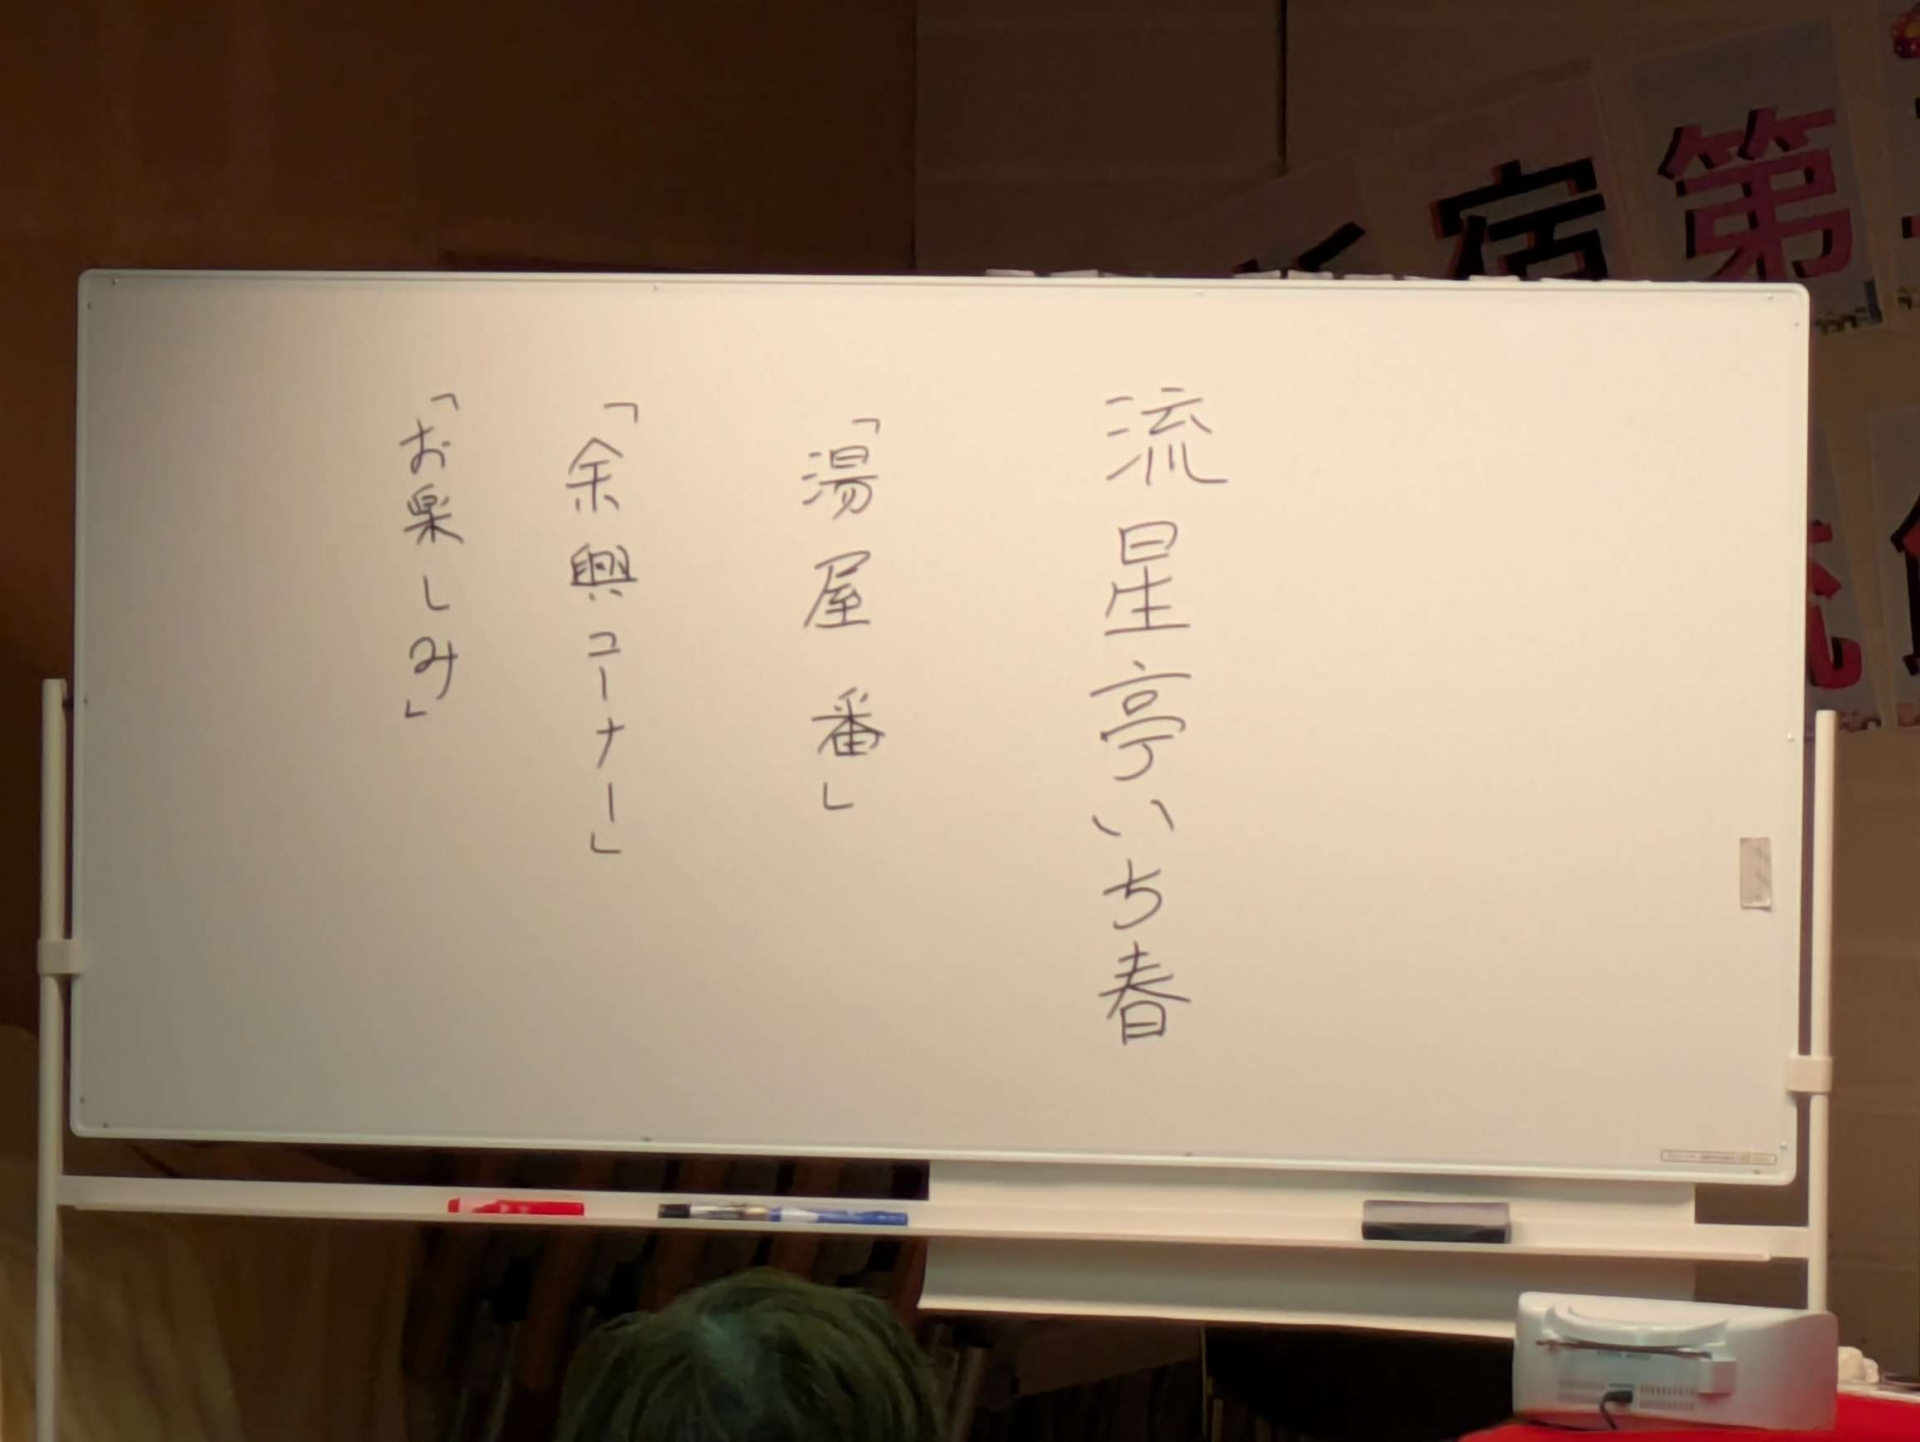 流星亭いち春
「湯屋番」
「余興コーナー」
「お楽しみ」
宿第